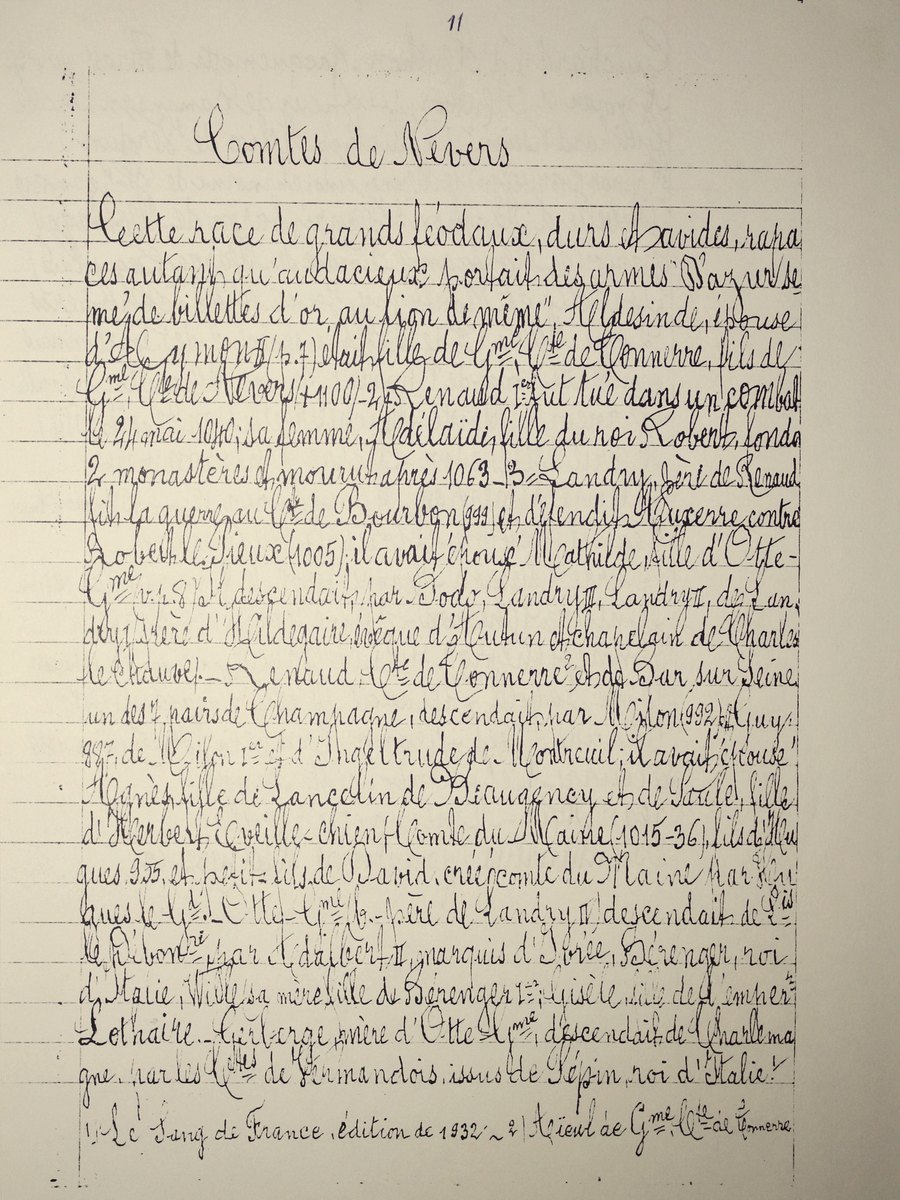 11
Comtes de Nevers
Cette race de grands féodaux, durs et avides, rapa
ces autant qu'audacieux portait des armes "D'azur se-
mé de billettes d'or, au lion de même". Aldesinde, épouse
d'Aymon II (p.7) était fille de Gme, Cte de Tonnerre, fils de
Gme, Cte de Nevers (+1100) -2/ Renaud Ier fut tué dans un combat
le 24 mai 1040; sa femme, Adélaïde, fille du roi Robert, fonda
2 monastères et mourut après 1063 - 3= Landry, père de Renaud
fit la guerre au Cte de Bourbon (999) et défendit Auxerre contre
Robert le Pieux (1005); il avait épousé Mathilde, fille d'Otte-
Gme (v.p.8) Il descendait, par Bodo, Landry III, Landry II, de Lan
dry, frère d'Hildegaire, évêque d'Autun et chapelain de Charles
le Chauve/. - Renaud Cte de Tonnerre 2 et de Bar sur Seine
un des 7 pairs de Champagne, descendait par Milon (992), Guy
987, de Milon Ier et d'Ingeltrude de Montreuil; il avait épousé
Agnès fille de Lancelin de Beaugency et de Paule, fille
d'Herbert Eveille-chien, Comte du Maine (1015-36), fils d'Hu
gues, 955, et petit-fils de David, créé comte du Maine par Hu
gues le Gd. - Otte-Gme (b.-père de Landry IV) descendait de Lis
le Débonre par Adalbert II, marquis d'Ivrée, Bérenger, roi
d'Italie, Wille sa mère fille de Bérenger Ier, Gisèle, fille de l'emper
Lothaire. - Gerberge, mère d'Otte-Gme, descendait de Charlema
gne, par les Ctes de Vermandois, issus de Pépin, roi d'Italie. 1
1/ Le Sang de France, édition de 1932 ~ 2) Aïeul de Gme, Cte de Tonnerre